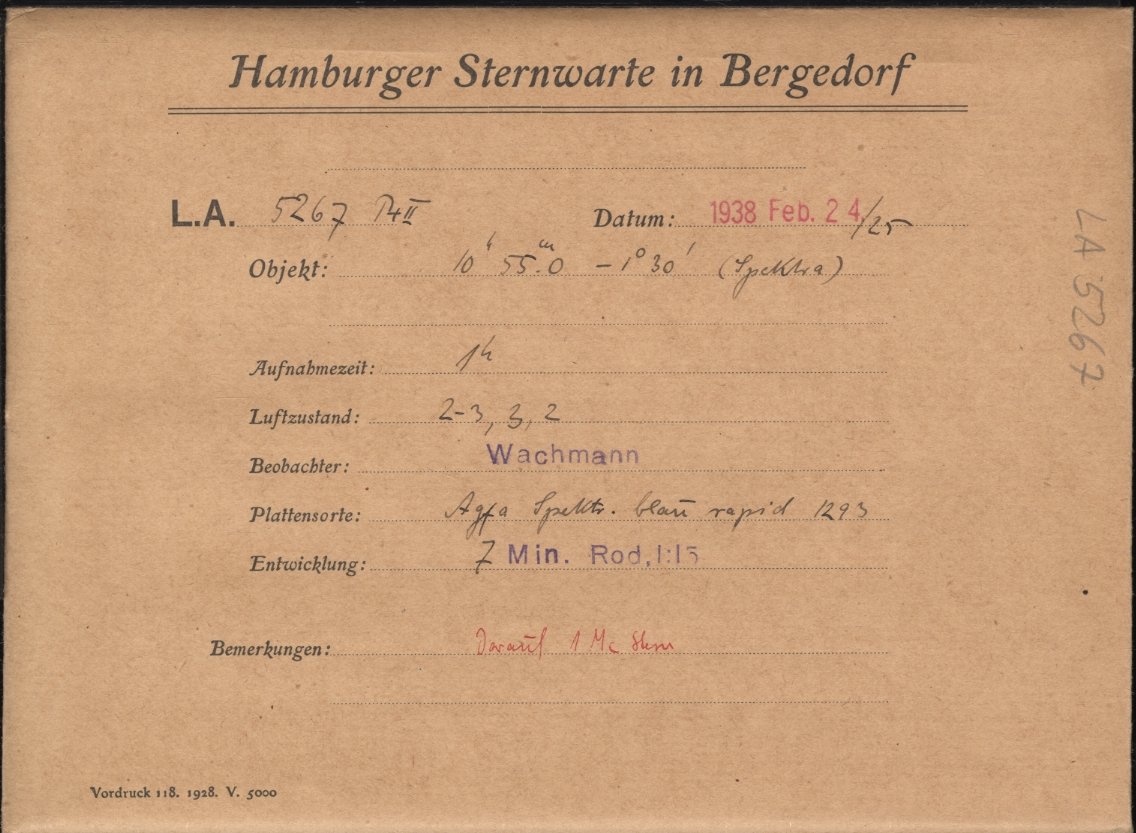 Hamburger Sternwarte in Bergedorf
L.A. 5267 Pr II Datum: 1938 Feb. 24./25
Objekt: 10h 55m.0 -1° 30' (Spektra)
Aufnahmezeit: 1h
Luftzustand: 2-3, 3, 2
Beobachter: Wachmann
Plattensorte: Agfa Spektr. blau rapid 1293
Entwicklung: 7 Min. Rod. 1:15
Bemerkungen: Darauf 1 Mc Stern
Vordruck 118. 1928. V. 5000
LA 5267